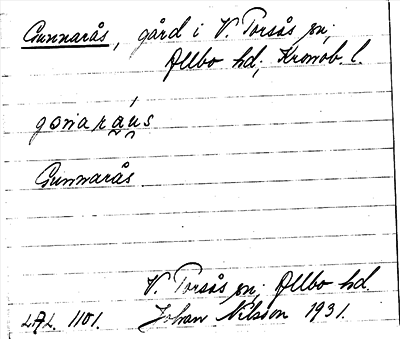 Gunnarås, gård i V. Torsås sn,
Allbo hd; Kronob. l.
gonaraus
Gunnarås
V. Torsås sn; Allbo hd.
LAL 1101. Johan Nilsson 1931.